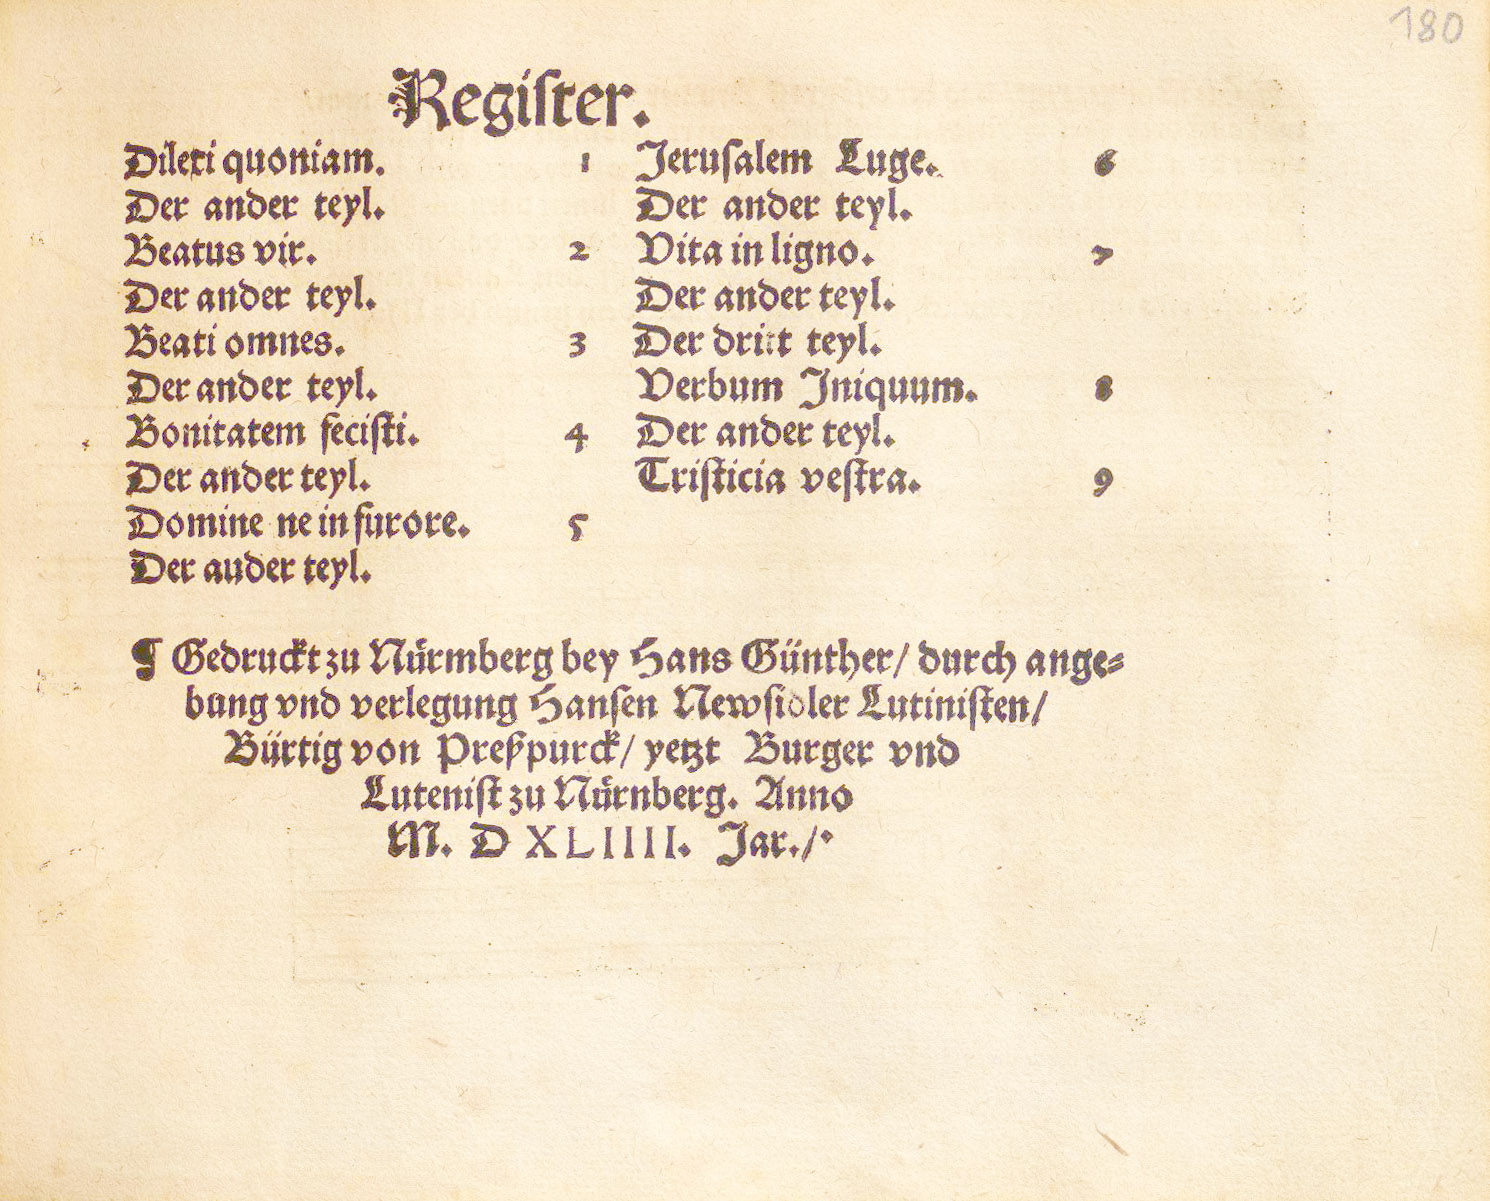 180
Register.
Dilexi quoniam. 1
Der ander teyl.
Beatus vir. 2
Der ander teyl.
Beati omnes. 3
Der ander teyl.
Bonitatem fecisti. 4
Der ander teyl.
Domine ne in furore. 5
Der auder teyl.
Jerusalem Luge. 6
Der ander teyl.
Vita in ligno. 7
Der ander teyl.
Der dritt teyl.
Verbum Iniquum. 8
Der ander teyl.
Tristicia vestra. 9
¶ Gedruckt zu Nürmberg bey Hans Günther/ durch ange⸗
bung vnd verlegung Hansen Newsidler Lutinisten/
Bürtig von Preßpurck/ yetzt Burger vnd
Lutenist zu Nürnberg. Anno
M. D XLIIII. Jar./·